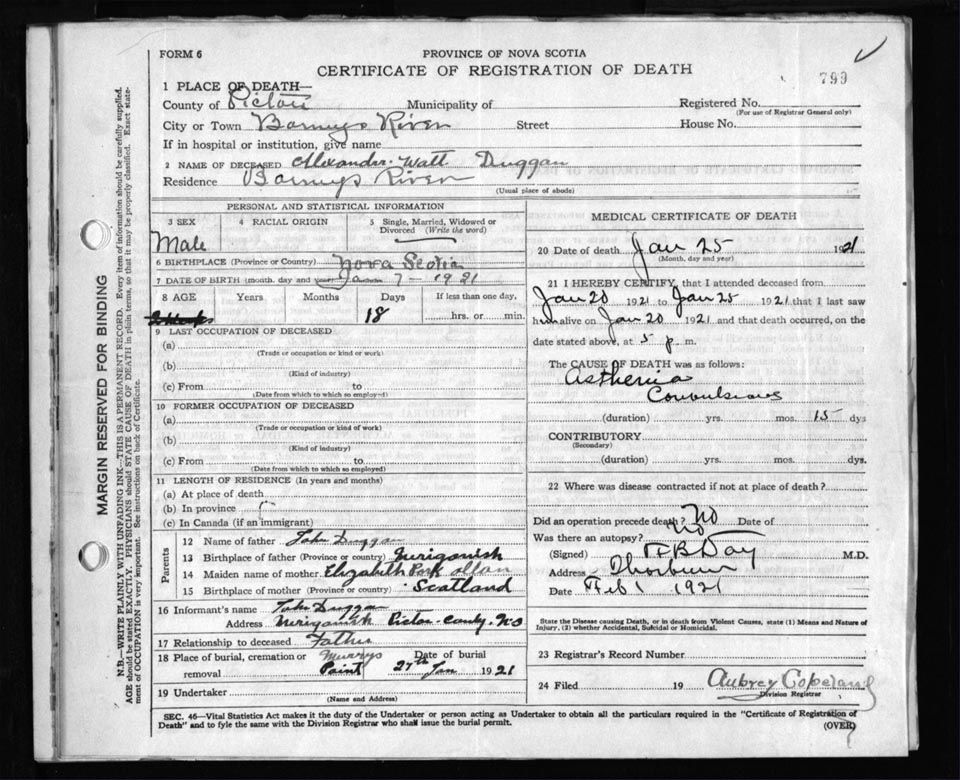 FORM 6
PROVINCE OF NOVA SCOTIA
CERTIFICATE OF REGISTRATION OF DEATH
799
1 PLACE OF DEATH—
County of Pictou Municipality of Registered No.
(For use of Registrar General only)
City or Town Barneys River Street House No.
If in hospital or institution, give name
2 NAME OF DECEASED Alexander Watt Duggan
Residence Barneys River
(Usual place of abode)
MARGIN RESERVED FOR BINDING
N.B.—WRITE PLAINLY WITH UNFADING INK—THIS IS A PERMANENT RECORD. Every item of information should be carefully supplied.
AGE should be stated EXACTLY. PHYSICIANS should STATE CAUSE OF DEATH in plain terms, so that it may be properly classified. Exact state-
ment of OCCUPATION is very important. See instructions on back of Certificate.
PERSONAL AND STATISTICAL INFORMATION
3 SEX 4 RACIAL ORIGIN 5 Single, Married, Widowed or
Divorced (Write the word)
Male
6 BIRTHPLACE (Province or Country) Nova Scotia
7 DATE OF BIRTH (month, day and year) 7 – 1921
8 AGE Years Months Days If less than one day,
18 hrs. or min.
9 LAST OCCUPATION OF DECEASED
(a)
(Trade or occupation or kind or work)
(b)
(Kind of industry)
(c) From to
(Date from which to which so employed)
10 FORMER OCCUPATION OF DECEASED
(a)
(Trade or occupation or kind of work)
(b)
(Kind of industry)
(c) From to
(Date from which to which so employed)
11 LENGTH OF RESIDENCE (In years and months)
(a) At place of death
(b) In province
(c) In Canada (if an immigrant)
Parents
12 Name of father John Duggan
13 Birthplace of father (Province or country) Merigomish
14 Maiden name of mother Elizabeth Park
15 Birthplace of mother (Province or country) Scotland
16 Informant's name John Duggan
Address Merigomish Pictou County. N.S
17 Relationship to deceased Father
18 Place of burial, cremation or Date of burial
removal Murrys Point 27th Jan 1921
19 Undertaker
(Name and Address)
MEDICAL CERTIFICATE OF DEATH
20 Date of death Jan 25 1921
(Month, day and year)
21 I HEREBY CERTIFY, that I attended deceased from
Jan 20 1921 to Jan 25 1921 that I last saw
him alive on Jan 20 1921 and that death occurred, on the
date stated above, at 5 p. m.
The CAUSE OF DEATH was as follows:
Asthenia
Convulsions
(duration) yrs. mos. 15 dys
CONTRIBUTORY
(Secondary)
(duration) yrs. mos. dys.
22 Where was disease contracted if not at place of death?
Did an operation precede death? No Date of
Was there an autopsy? No
(Signed) Day M.D.
Address Thorburn
Date Feb 1 1921
State the Disease Causing Death, or in death from Violent Causes, state (1) Means and Nature of
Injury, (2) whether Accidental, Suicidal or Homicidal.
23 Registrar's Record Number
24 Filed 19 Aubrey Copeland
Division Registrar
SEC. 46—Vital Statistics Act makes it the duty of the Undertaker or person acting as Undertaker to obtain all the particulars required in the "Certificate of Registration of
Death" and to fyle the same with the Division Registrar who shall issue the burial permit.
(OVER)